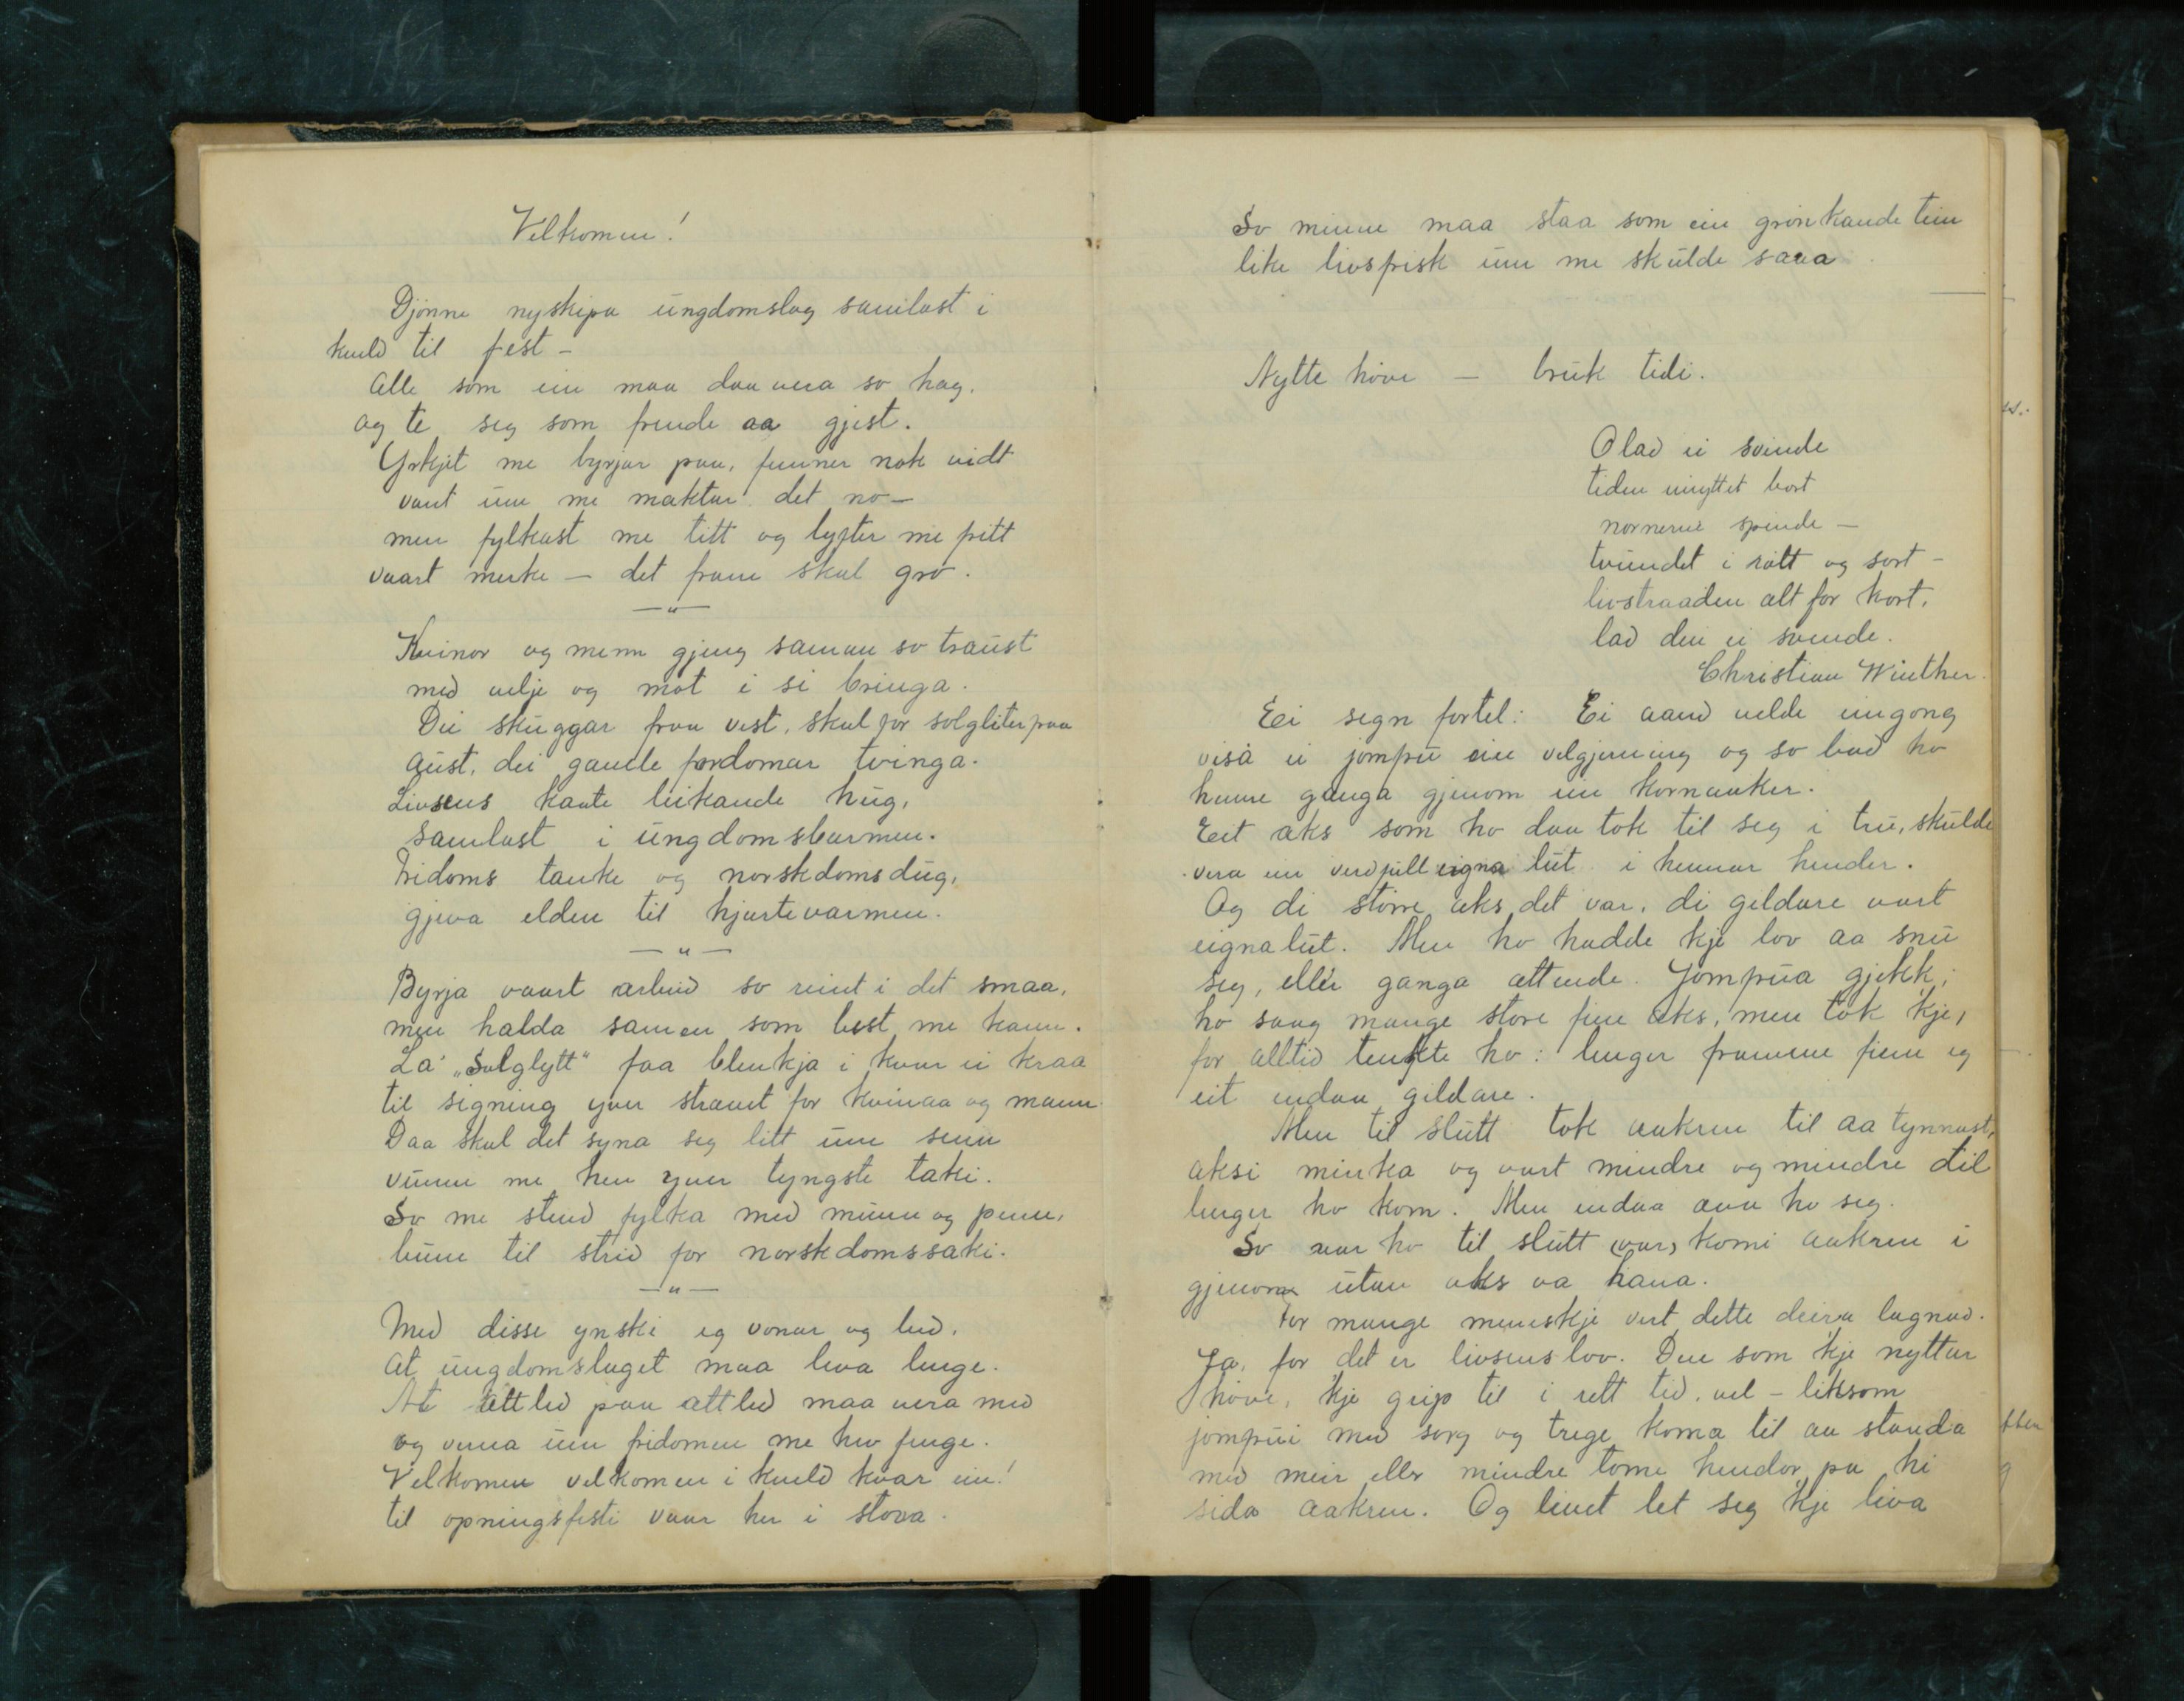 Velkomen!
Djønne nyskipa ungdomslag samlast i
kveld til fest –
Alle som ein maa daa vera so hag,
og te seg som frende aa gjest.
Yrkjet me byrjar paa, femner nok vidt
vant um me maktar det no –
men fylkast me titt og lyfter me fritt
vaart merke – det fram skal gro.
— " —
Kvinor og menn gjeng saman so traust
med vilje og mot i si bringa.
Dei skuggar fraa vest, skal for solgliter fraa
aust, dei gamle fordomar tvinga.
Livsens kaate leikande hug,
samlast i ungdomsbarmen.
Fridoms tanke og norskdoms dug,
gjeva elden til hjartevarmen.
— " —
Byrja vaart arbeid so reint i det smaa,
men halda saman som best me kann.
La "Solglytt" faa blenkja i kvar ei kraa
til signing yver straumt for kvinaa og mann.
Daa skal det syna seg litt um senn
vinn me hen yver tyngste taki.
So me stend fylka med munn og penn,
bunn til strid for norskdomssaki.
— " —
Med disse ynski eg vonar og bed,
at ungdomslaget maa leva lenge.
At ættled paa ættled maa vera med
og verna um fridomen me hev fenge.
Velkomen velkomen i kveld kvar ein!
til opningsfesti vaar her i stova.
So minne maa staa som ein grønkande tein
like livsfrisk um me skulde saaa
Nytte høve – bruk tidi.
O lad ei svinde
tiden unyttet bort
nornerne spinde –
tvundet i rødt og sort –
livstraaden alt for kort,
lad den ei svinde.
Christian Winther.
Ei segn fortel: Ei aand vilde eingong
visa ei jomfru ein velgjerning og so bad ho
henne ganga gjenom ein kornaaker.
Eit aks som ho daa tok til seg i tru, skulde
vera ein verdfull eignalut i hennar hender.
Og di større aks det var, di gildare vart
eignalut. Men ho hadde kje lov aa snu
seg, eller ganga attende. Jomfrua gjekk,
ho saag mange store fine aks, men tok 'kje,
for alltid tenkte ho: lenger framme finn eg
eit endaa gildare.
Men til slutt tok aakren til aa tynnast,
aksi minka og vart mindre og mindre dil
lenger ho kom. Men endaa ana ho seg.
So var ho til slutt (var) komi aakren i
gjenom utan aks aa hava.
For mange menneskje vert dette deira lagnad.
Ja, for det er livsens lov. Den som 'kje nyttar
høve, 'kje grip til i rett tid, vil – liksom
jomfrui med sorg og trege koma til aa standa
med meir eller mindre tome hender paa hi
sida aakren. Og livet let seg 'kje liva